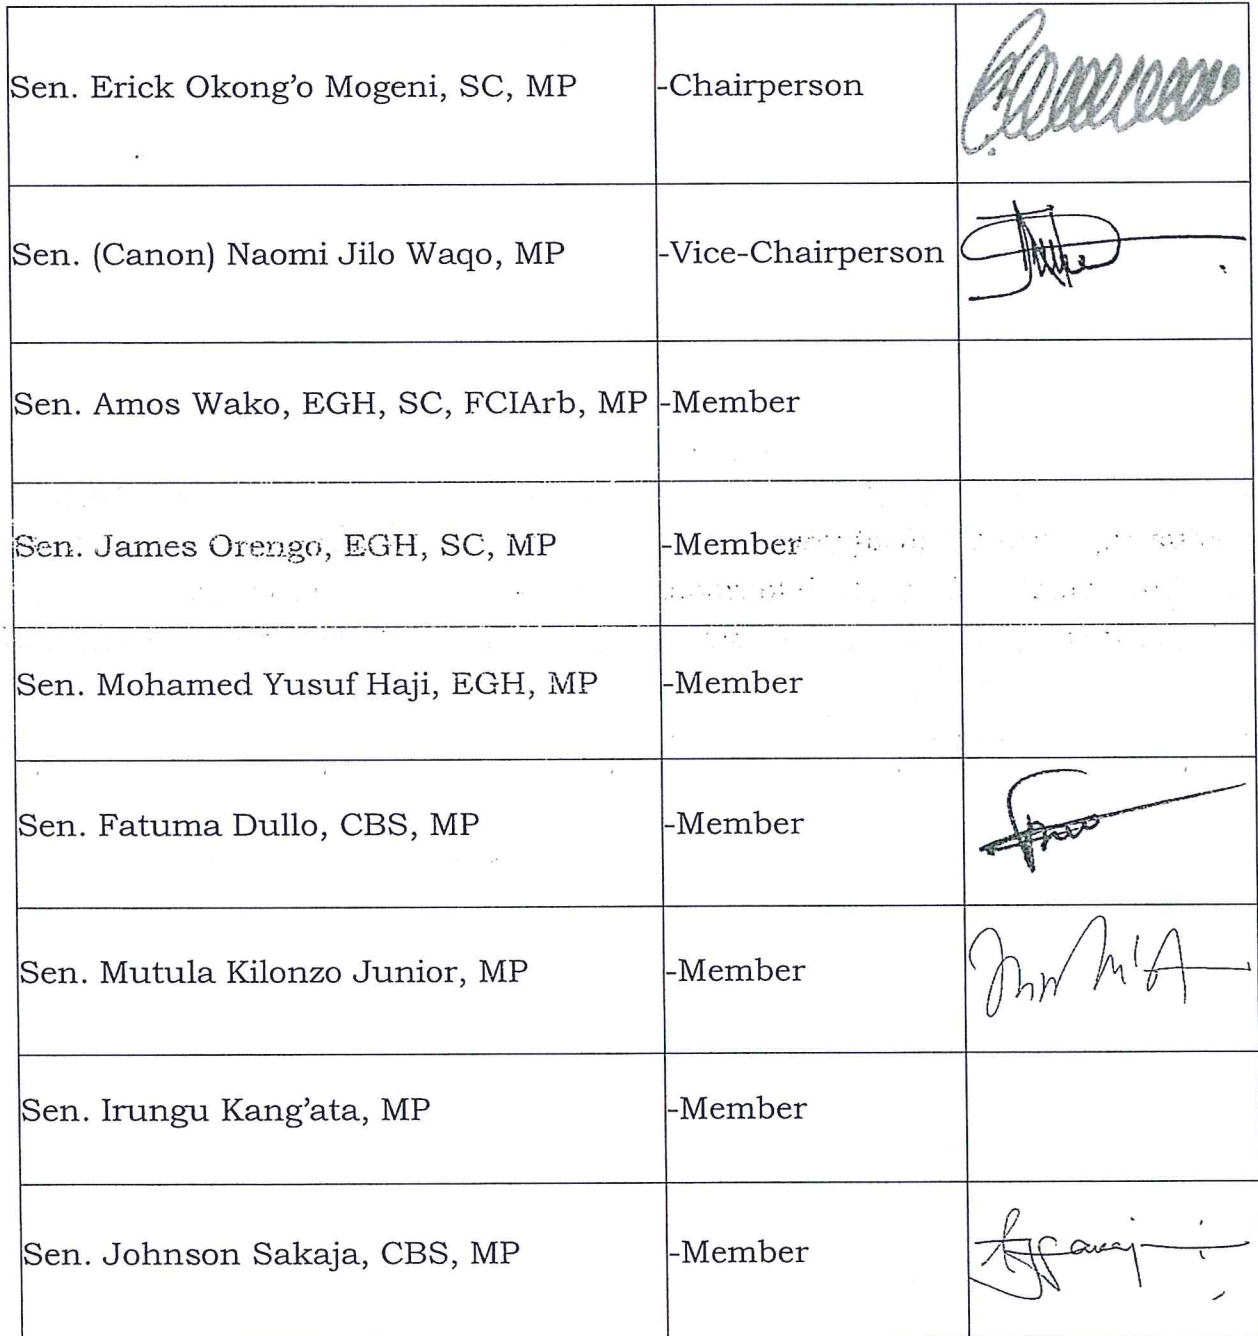 Sen. Erick Okong’o Mogeni, SC, MP -Chairperson
Sen. (Canon) Naomi Jilo Waqo, MP -Vice-Chairperson
Sen. Amos Wako, EGH, SC, FCIArb, MP -Member
Sen. James Orengo, EGH, SC, MP -Member
Sen. Mohamed Yusuf Haji, EGH, MP -Member
Sen. Fatuma Dullo, CBS, MP -Member
Sen. Mutula Kilonzo Junior, MP -Member
Sen. Irungu Kang’ata, MP -Member
Sen. Johnson Sakaja, CBS, MP -Member